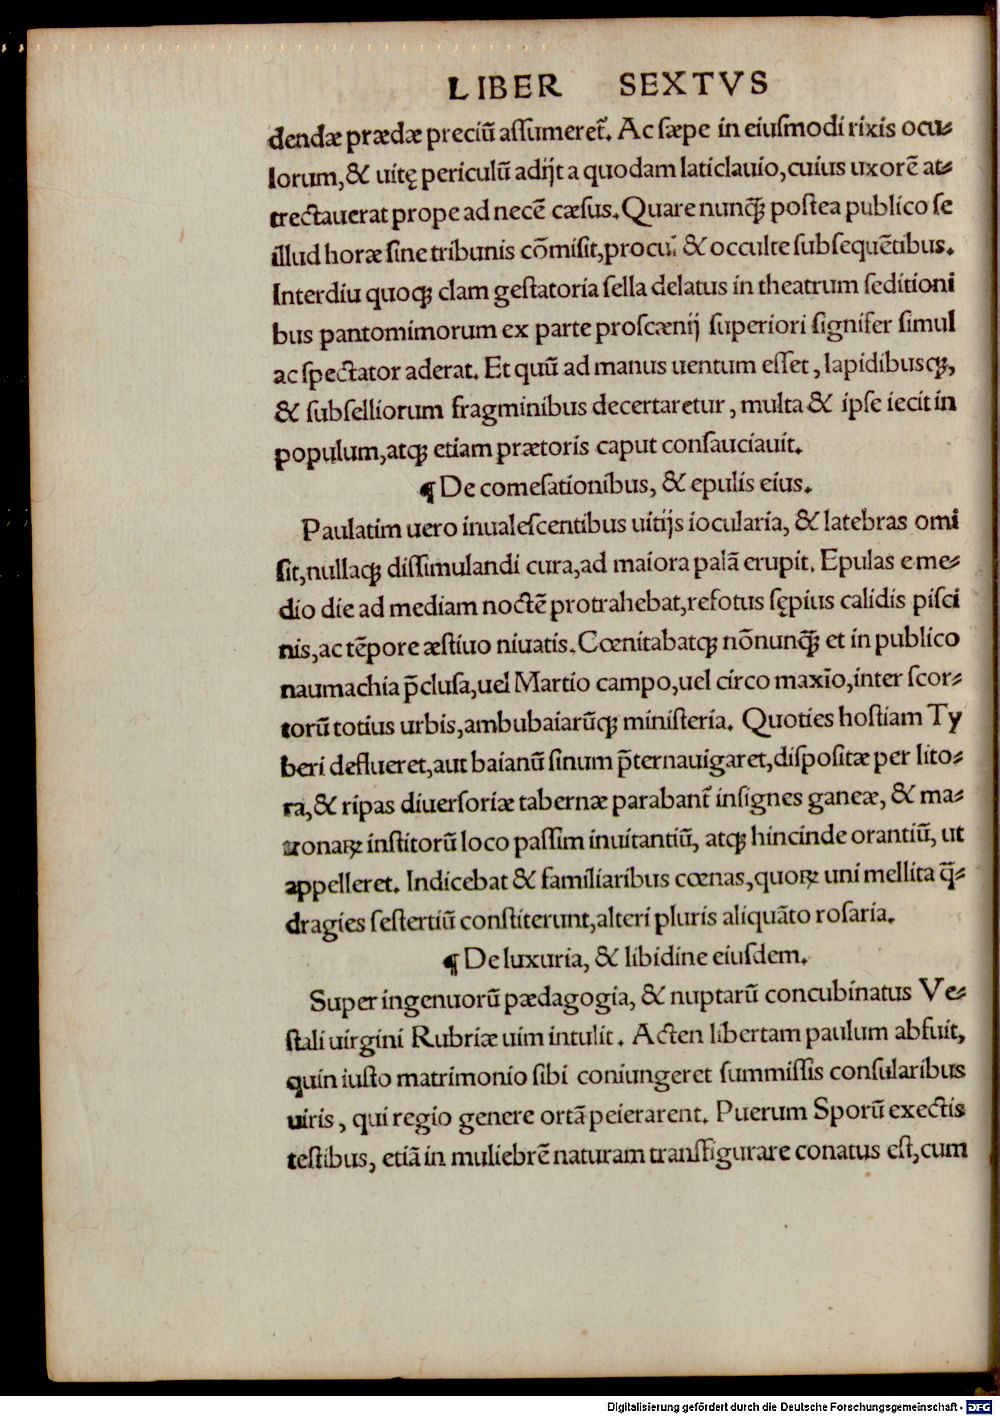 LIBER SEXTVS
dendæ prædæ preciũ aſſumeret᷑. Ac ſæpe in eiuſmodi rixis ocu-
lorum, & uitę periculũ adijt a quodam laticlauio, cuius uxorẽ at-
trectauerat prope ad necẽ cæſus. Quare nunꝗ̃ poſtea publico ſe
illud horæ ſine tribunis cõmiſit, procul & occulte ſubſequẽtibus.
Interdiu quoqꝫ clam geſtatoria ſella delatus in theatrum ſeditioni
bus pantomimorum ex parte proſcænij ſuperiori ſignifer ſimul
ac ſpectator aderat. Et quũ ad manus uentum eſſet, lapidibusqꝫ,
& ſubſelliorum fragminibus decertaretur, multa & ipſe iecit in
populum, atqꝫ etiam prætoris caput conſauciauit.
¶ De comeſationibus, & epulis eius.
Paulatim uero inualeſcentibus uitijs iocularia, & latebras omi
ſit, nullaqꝫ diſſimulandi cura, ad maiora palã erupit. Epulas e me-
dio die ad mediam noctẽ protrahebat, refotus ſępius calidis piſci
nis, ac tẽpore æſtiuo niuatis. Cœnitabatqꝫ nõnunꝗ̃ et in publico
naumachia p̃cluſa, uel Martio campo, uel circo maxĩo, inter ſcor-
torũ totius urbis, ambubaiarũqꝫ miniſteria. Quoties hoſtiam Ty
beri deflueret, aut baianũ ſinum p̃ternauigaret, diſpoſitæ per lito-
ra, & ripas diuerſoriæ tabernæ parabant᷑ inſignes ganeæ, & ma-
tronaꝝ inſtitorũ loco paſſim inuitantiũ, atqꝫ hincinde orantiũ, ut
appelleret. Indicebat & familiaribus cœnas, quoꝝ uni mellita q̃-
dragies ſeſtertiũ conſtiterunt, alteri pluris aliquãto roſaria.
¶ De luxuria, & libidine eiuſdem.
Super ingenuorũ pædagogia, & nuptarũ concubinatus Ve-
ſtali uirgini Rubriæ uim intulit. Acten libertam paulum abfuit,
quin iuſto matrimonio ſibi coniungeret ſummiſſis conſularibus
uiris, qui regio genere ortã peierarent. Puerum Sporũ exectis
teſtibus, etiã in muliebrẽ naturam tranſfigurare conatus eſt, cum
Digitalisierung gefördert durch die Deutsche Forschungsgemeinschaft - DFG